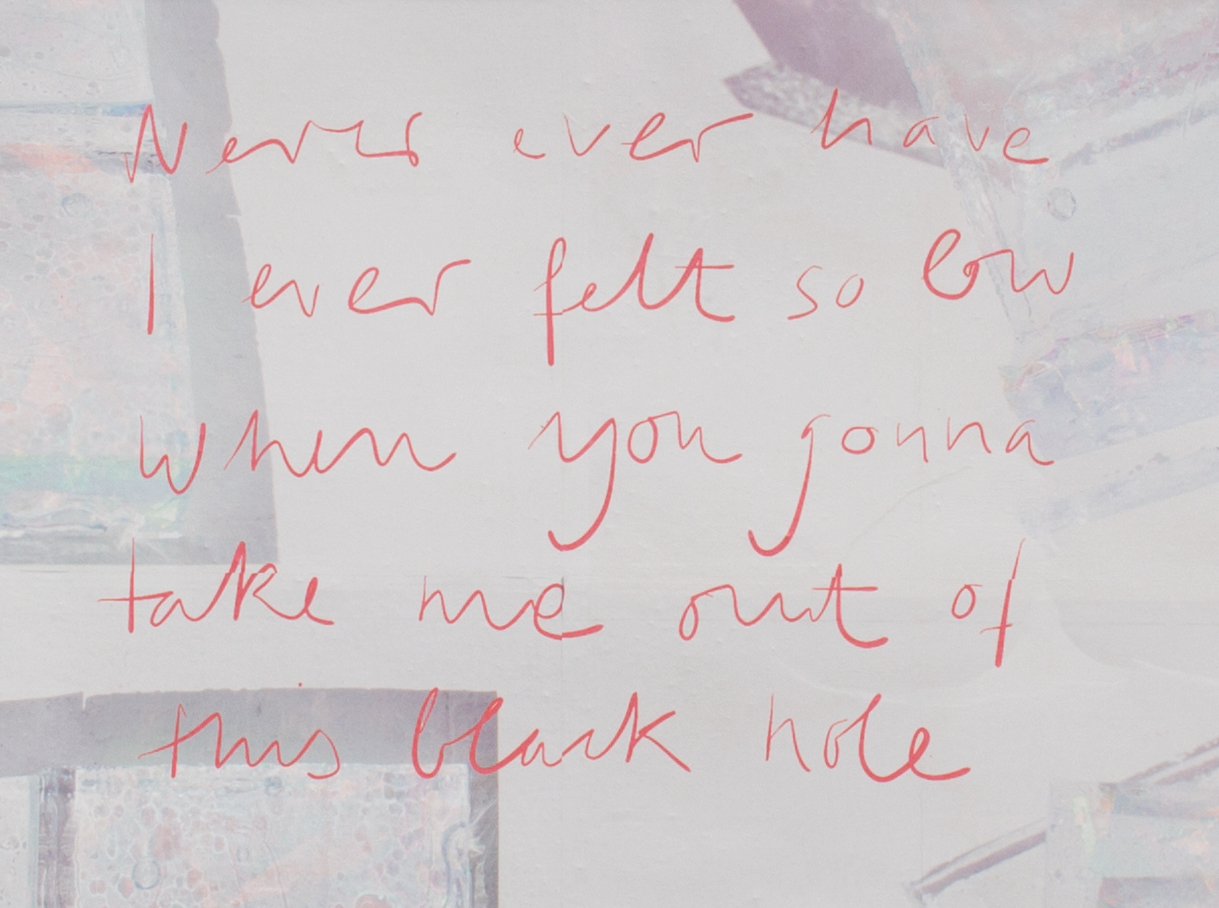 Never ever have
I ever felt so low
When you gonna
take me out of
this black hole